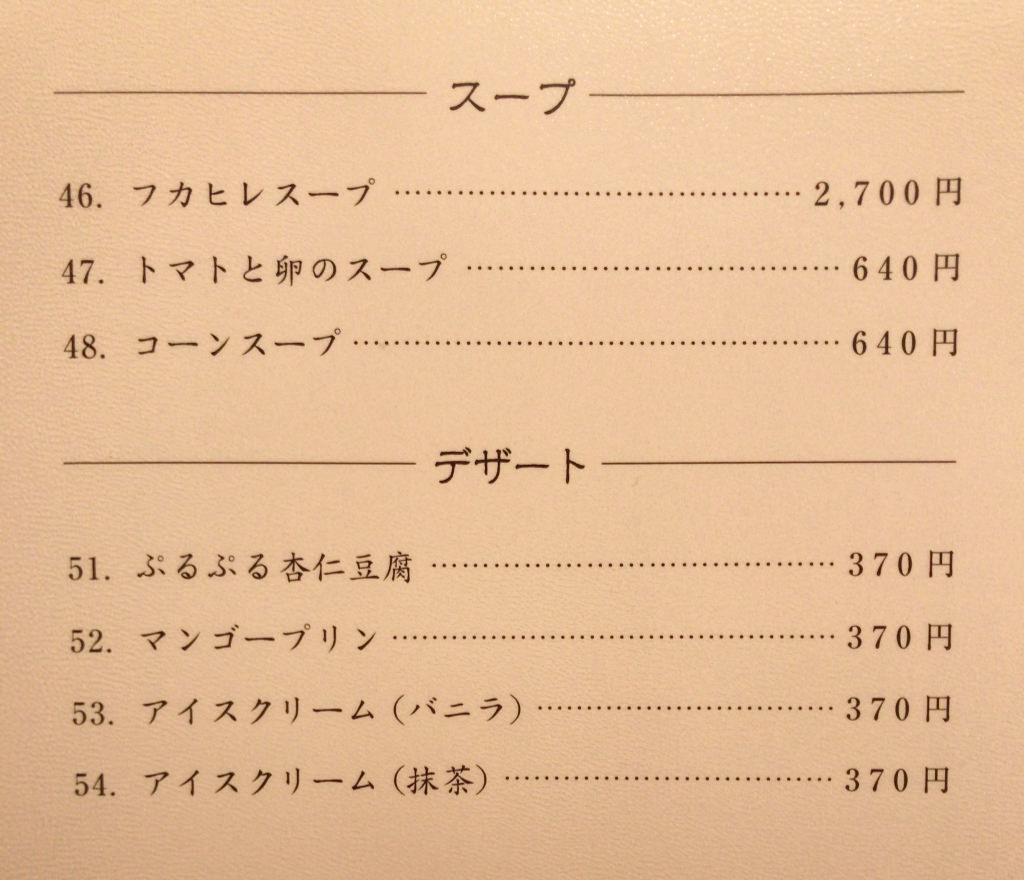 スープ
46. フカヒレスープ ………………………………… 2,700 円
47. トマトと卵のスープ ……………………………… 640 円
48. コーンスープ ……………………………………… 640 円
デザート
51. ぷるぷる杏仁豆腐 ………………………………… 370 円
52. マンゴープリン …………………………………… 370 円
53. アイスクリーム（バニラ） ………………………… 370 円
54. アイスクリーム（抹茶） …………………………… 370 円